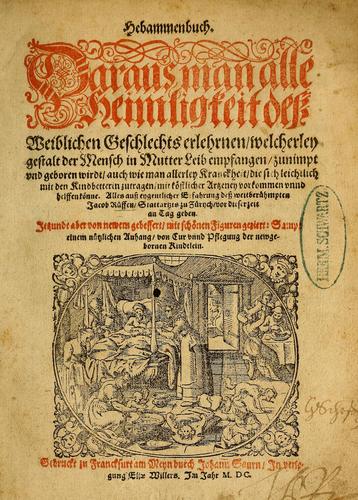 Hebammenbuch.
Daraus man alle
Heimligkeit deß
Weiblichen Geschlechts erlehrnen/welcherley
gestalt der Mensch in Mutter Leib empfangen/zunimpt
vnd geboren wirdt/auch wie man allerley Kranckheit/die sich leichtlich
mit den Kindbetterin zutragen/mit köstlicher Artzeney vorkommen vnnd
helffen könne. Alles auß eygentlicher Erfahrung deß weitberühmpten
Jacob Rüffen/Stattartzts zu Zürych/vor dieser zeit
an Tag geben.
Jetzundt aber von newem gebessert/mit schönen Figuren geziert: Sampt
einem nützlichen Anhang/von Cur vnnd Pflegung der newge-
bornen Kindtlein.
HERM. SCHWARTZ
Gedruckt zu Franckfurt am Meyn durch Johann Saurn/In verle-
gung Elix Willers. Im Jahr M. DC.